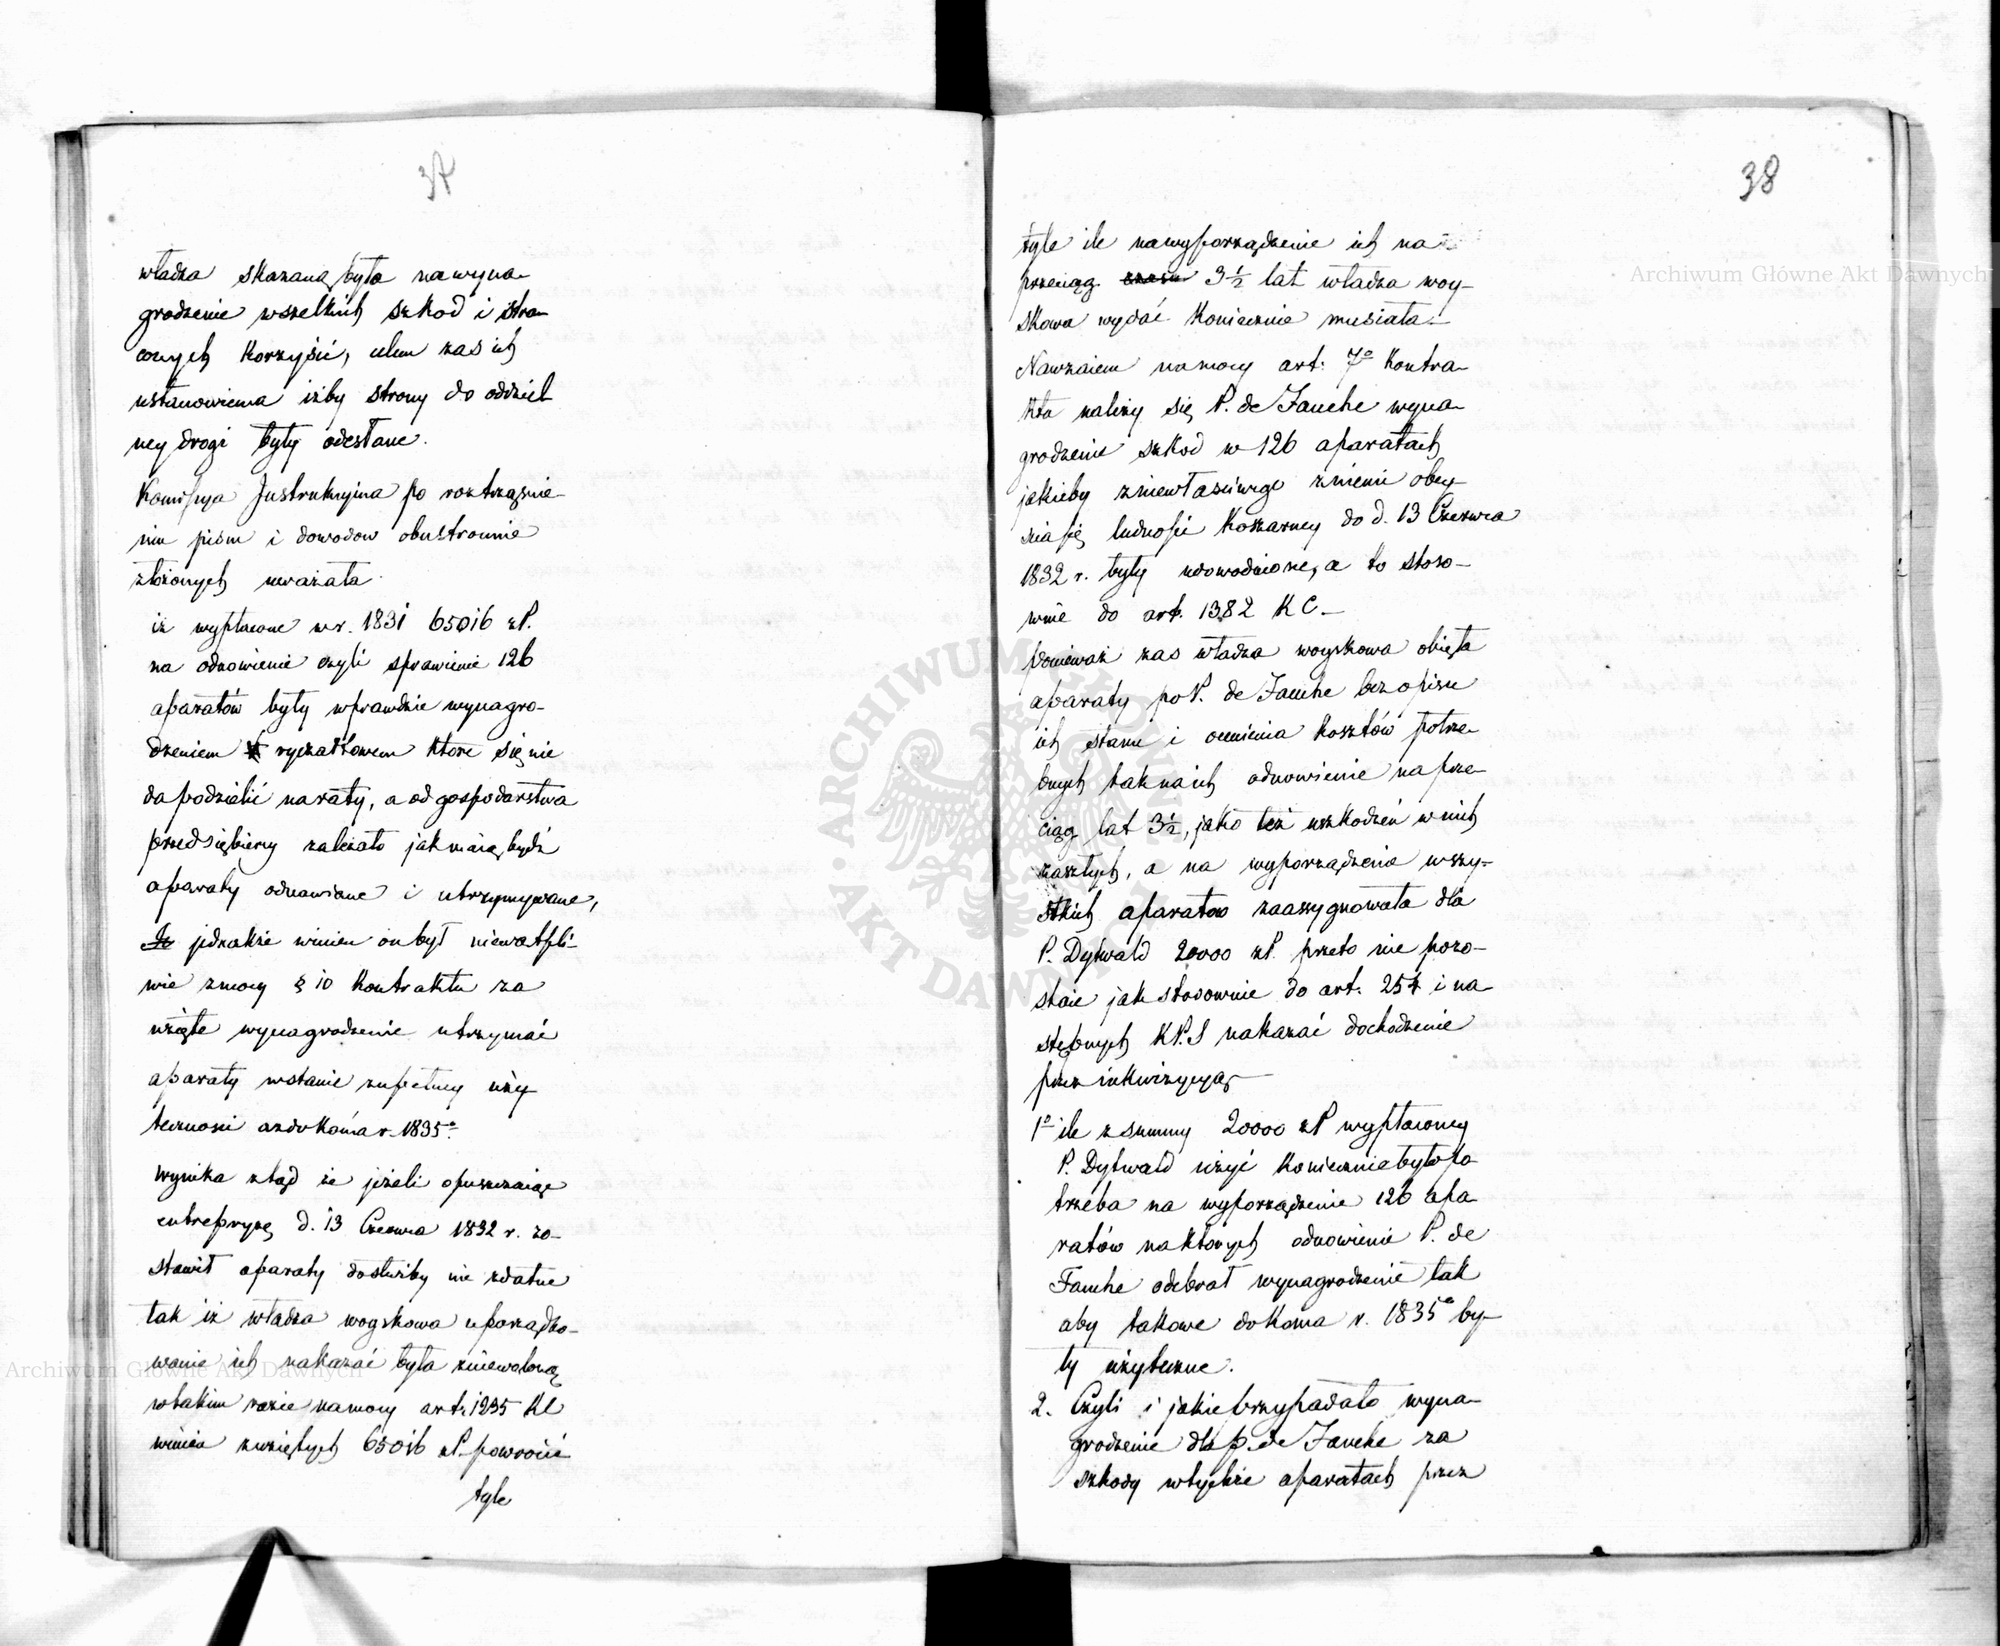 37
władza skazaną była na wyna-
grodzenie wszelkich szkod i stra-
conych korzyści, celem zas ich
ustanowienia iżby strony do oddziel
ney drogi były odesłane.
Kommissya Instrukcyina po roztrząśnie-
niu pism i dowodow obustronnie
złożonych uważała
iż wypłacone w r. 1831 65016 zP.
na odnowienie czyli sprawienie 126
aparatów były wprawdzie wynagro-
dzeniem ryczałtowem ktore się nie
da podzielić na raty, a od gospodarstwa
przedsiębiercy zależało jak maią bydź
aparaty odnawiane i utrzymywane,
jednakże winien on był niewątpli-
wie z mocy § 10 kontraktu za
wzięte wynagrodzenie utrzymać
aparaty w stanie zupełney uży
teczności aż do końca r. 1835º.
wynika ztąd że jeżeli opuszczaiąc
entrepryzę d. 13 Czerwca 1832 r. zo-
stawił aparaty do służby nie zdatne
tak iż władza woyskowa uporządko-
wanie ich nakazać była zniewoloną
w takim razie na mocy art. 1235 KC
winien z wziętych 65016 zP. powrócić
tyle
38
tyle ile na wyporządzenie ich na
przeciąg czasu 3½ lat władza woy-
skowa wydać koniecznie musiała.
Nawzaiem na mocy art: 7º Kontra-
ktu należy się P. de Fauche wyna-
grodzenie szkod w 126 aparatach
jakieby z niewłaściwego z niemi obey-
scia się ludności koszarney do d. 13 Czerwca
1832 r. były udowodnione, a to stoso-
wnie do art. 1382 K C
ponieważ zas władza woyskowa obięła
aparaty po P. de Fauche bez opisu
ich stanu i ocenienia kosztów potrze-
bnych tak na ich odnowienie na prze-
ciąg lat 3½, jako też uszkodzeń w nich
zaszłych, a na wyporządzenie wszy-
stkich aparatow zaassygnowała dla
P. Dytwald 20000 zP. przeto nie pozo-
staie jak stosownie do art. 254 i na-
stępnych KPS nakazać dochodzenie
przez inkwizycyą
1º ile z summy 20000 zP wypłaconey
P. Dytwald użyć koniecznie było po
trzeba na wyporządzenie 126 apa
ratów na ktorych odnowienie P. de
Fauche odebrał wynagrodzenie tak
aby takowe do końca r. 1835º by-
ły użyteczne.
2. Czyli i jakie przypadało wyna-
grodzenie dla p. de Fauche za
szkody w tychże aparatach przez
ARCHIWUM GŁÓWNE AKT DAWNYCH
Archiwum Główne Akt Dawnych
Archiwum Główne Akt Dawnych